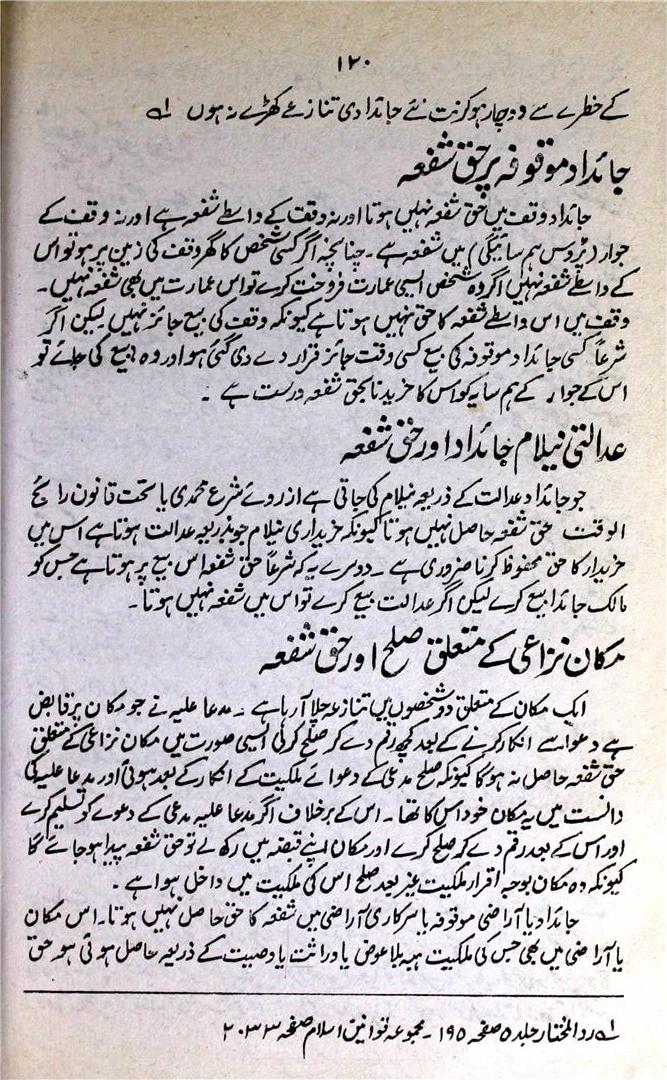 ۱۲۰
کے خطرے سے دوچار ہو کر نت نئے جائدادی تنازعے کھڑے نہ ہوں لہ
جائداد موقوفہ پر حق شفعہ
جائداد وقف میں حق شفعہ نہیں ہوتا اور نہ وقف کے واسطے شفعہ ہے اور نہ وقف کے
جوار (پڑوس ہم سائیگی) میں شفعہ ہے۔ چنانچہ اگر کسی شخص کا گھر وقف کی زمین پر ہو تو اس
کے واسطے شفعہ نہیں اگر وہ شخص ایسی عمارت فروخت کرے تو اس عمارت میں بھی شفعہ نہیں۔
وقف میں اس واسطے شفعہ کا حق نہیں ہوتا ہے کیونکہ وقف کی بیع جائز نہیں۔ لیکن اگر
شرعاً کسی جائداد موقوفہ کی بیع کسی وقت جائز قرار دے دی گئی ہو اور وہ بیع کی جائے تو
اس کے جوار کے ہم سایہ کو اس کا خریدنا بحق شفعہ درست ہے۔
عدالتی نیلام جائداد اور حق شفعہ
جو جائداد عدالت کے ذریعہ نیلام کی جاتی ہے از روئے شرع محمدی یا تحت قانون رائج
الوقت حق شفعہ حاصل نہیں ہوتا کیونکہ خریداری نیلام جو بذریعہ عدالت ہوتا ہے اس میں
خریدار کا حق محفوظ کرنا ضروری ہے۔ دوسرے یہ کہ شرعاً حق شفعہ اس بیع پر ہوتا ہے جس کو
مالک جائدا بیع کرے لیکن اگر عدالت بیع کرے تو اس میں شفعہ نہیں ہوتا۔
مکان نزاعی کے متعلق صلح اور حق شفعہ
ایک مکان کے متعلق دو شخصوں میں تنازعہ چلا آ رہا ہے۔ مدعا علیہ نے جو مکان پر قابض
ہے دعوا سے انکار کرنے کے بعد کچھ رقم دے کر صلح کر لی ایسی صورت میں مکان نزاعی کے متعلق
حق شفعہ حاصل نہ ہوگا کیونکہ صلح مدعی کے دعوائے ملکیت کے انکار کے بعد ہوئی اور مدعا علیہ کی
دانست میں یہ مکان خود اس کا تھا۔ اس کے برخلاف اگر مدعا علیہ مدعی کے دعوے کو تسلیم کرے
اور اس کے بعد رقم دے کر صلح کرے اور مکان اپنے قبضہ میں رکھ لے تو حق شفعہ پیدا ہو جائے گا
کیونکہ وہ مکان بوجہ اقرار ملکیت غیر بعد صلح اس کی ملکیت میں داخل ہوا ہے۔
جائداد یا آراضی موقوفہ یا سرکاری آراضی میں شفعہ کا حق حاصل نہیں ہوتا۔ اس مکان
یا آراضی میں بھی جس کی ملکیت ہبہ بلا عوض یا وراثت یا وصیت کے ذریعہ حاصل ہوئی ہو حق
لہ ردالمختار جلد ۵ صفحہ ۱۹۵۔ مجموعہ قوانین اسلام صفحہ ۲۰۳۳